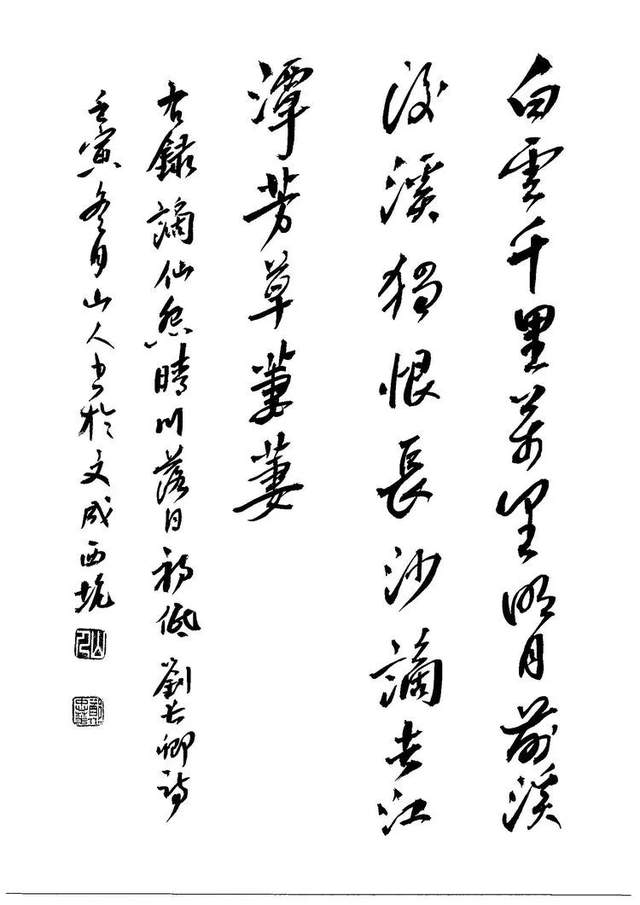 白雲千里萬里明月前溪
後溪獨恨長沙謫去江
潭芳草萋萋
右錄謫仙怨晴川落日初低 劉長卿詩
壬寅冬月山人書於文成西坑